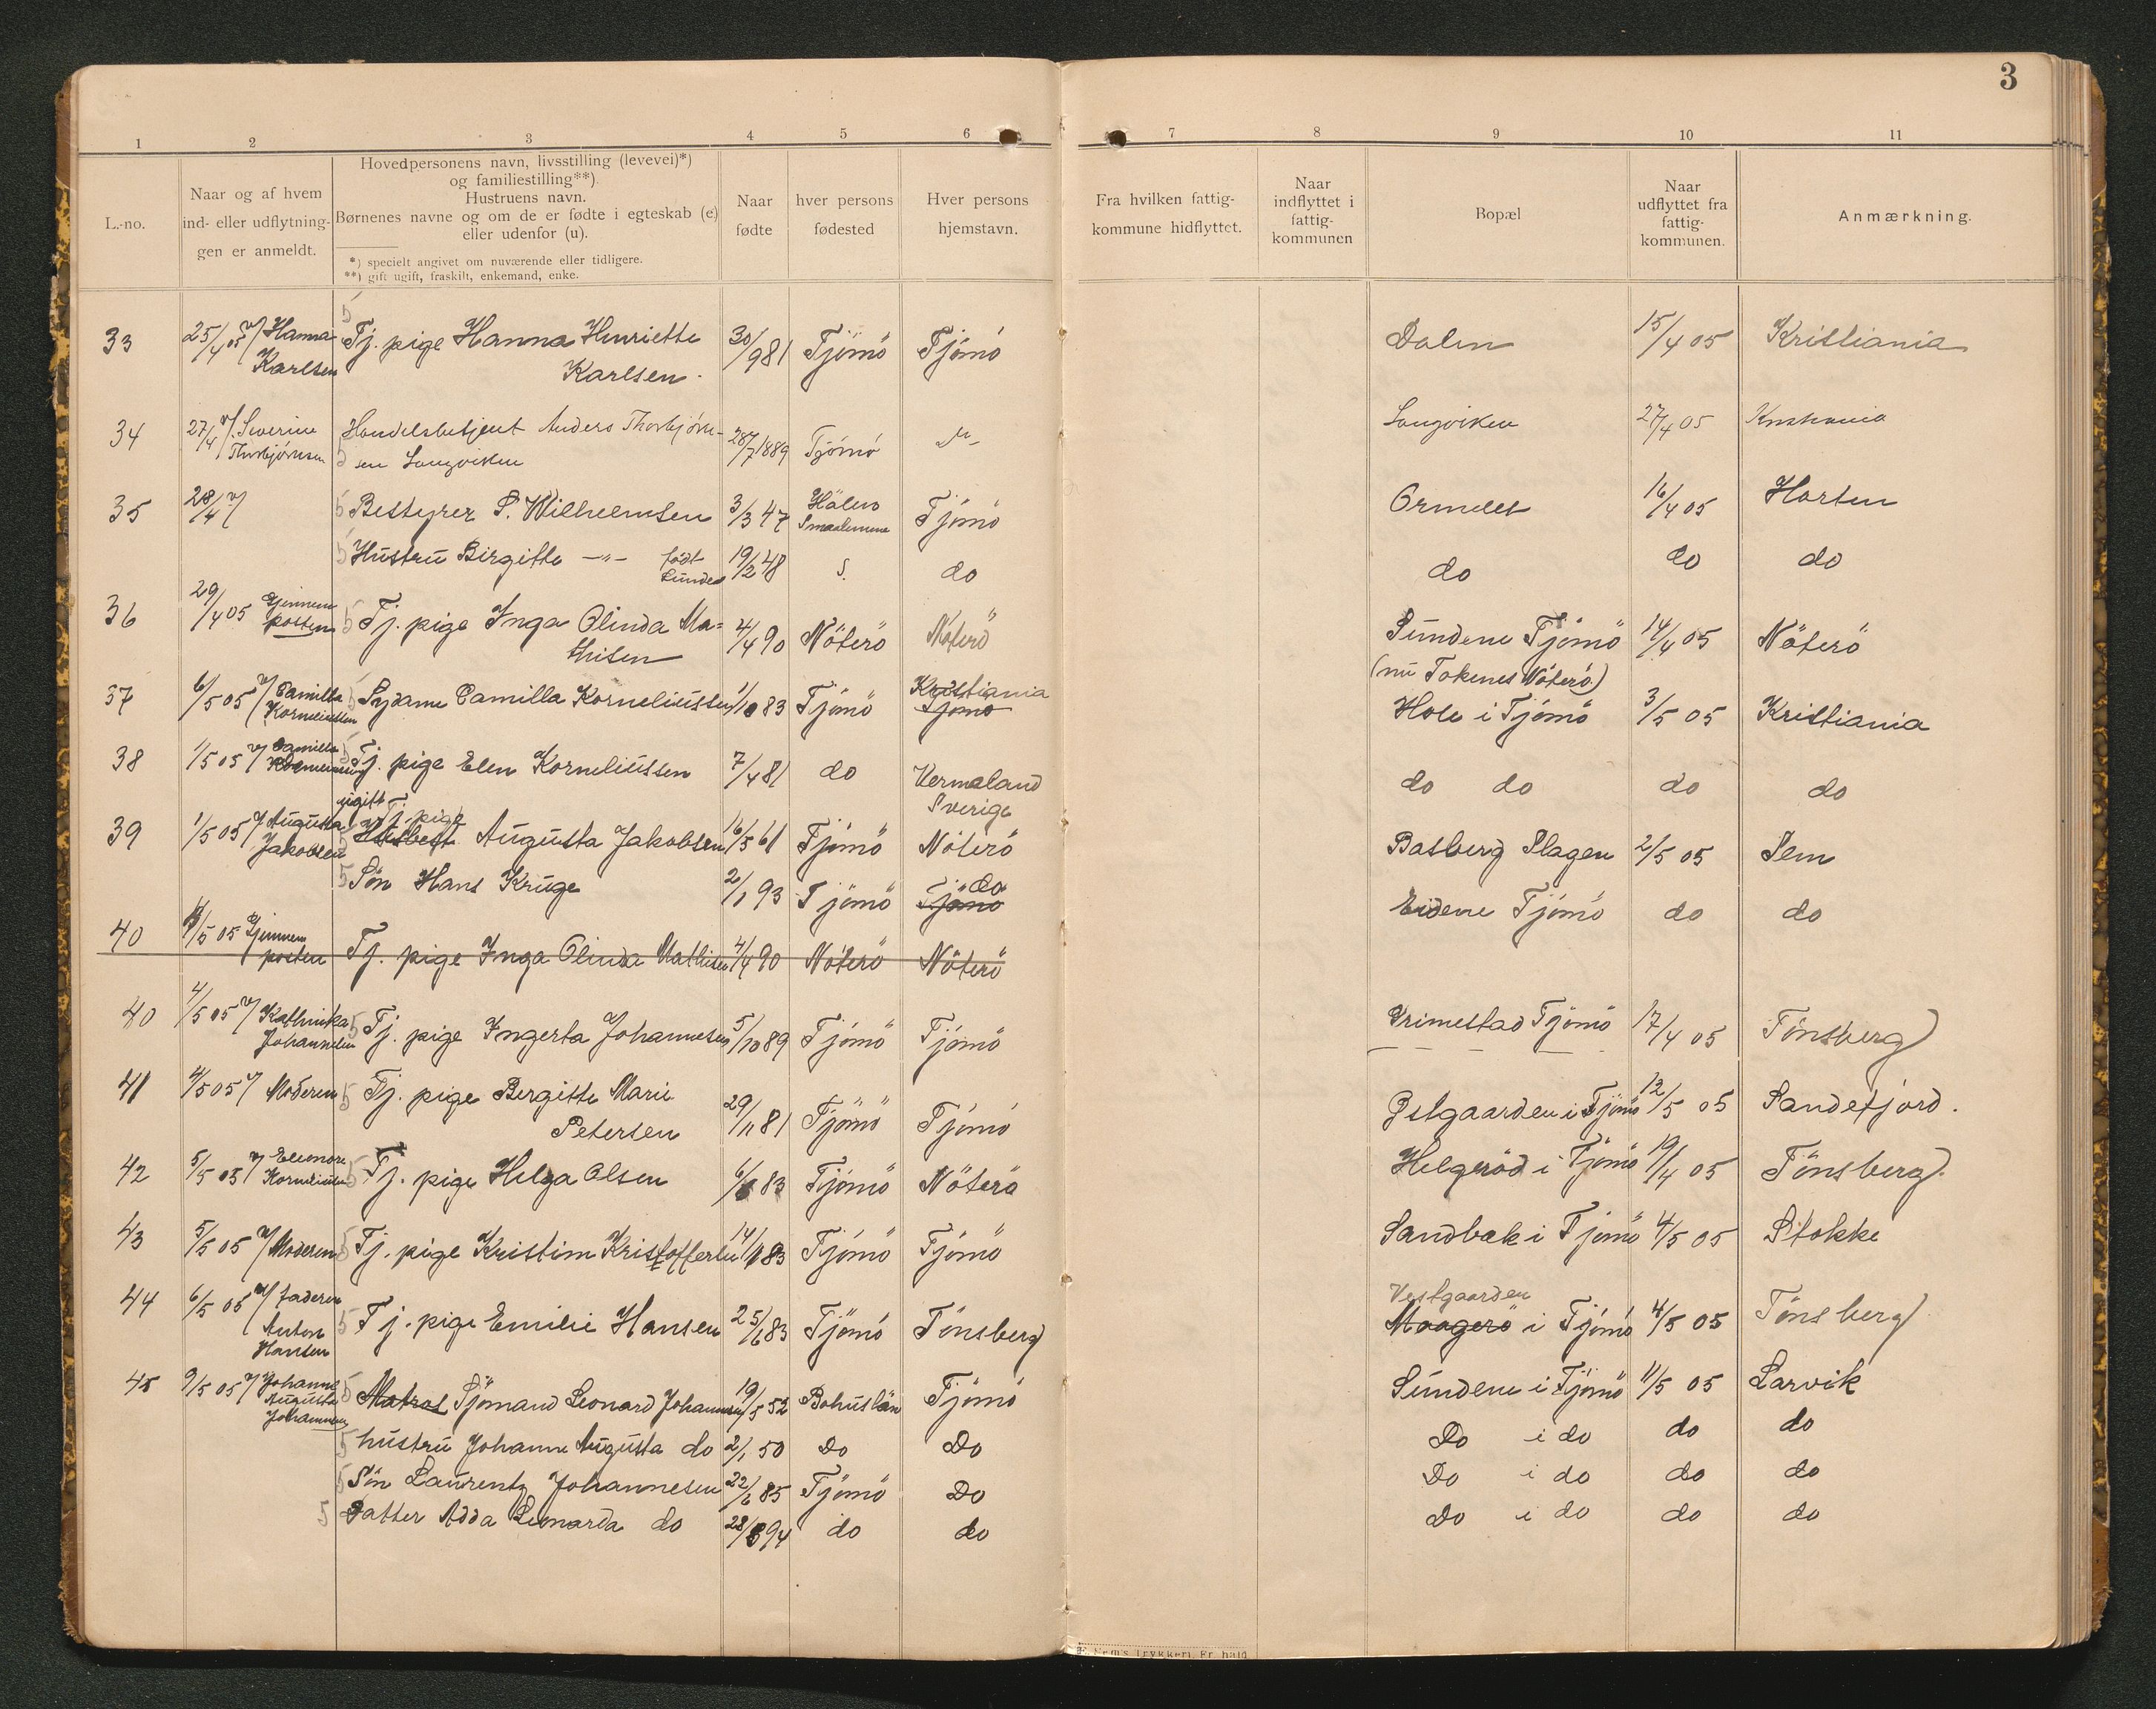 3
1 2 3 4 5 6 7 8 9 10 11
L.-no.
Naar og af hvem
ind- eller udflytning-
gen er anmeldt.
Hovedpersonens navn, livsstilling (levevei)*)
og familiestilling**)
Hustruens navn.
Børnenes navne og om de er fødte i egteskab (e)
eller udenfor (u).
*) specielt angivet om nuværende eller tidligere.
**) gift ugift, fraskilt, enkemand, enke.
Naar
fødte
hver persons
fødested
Hver persons
hjemstavn.
Fra hvilken fattig-
kommune hidflyttet.
Naar
indflyttet i
fattig-
kommunen
Bopæl
Naar
udflyttet fra
fattig-
kommunen.
Anmærkning.
33 25/4 05 v/ Hanna Tj. pige Hanna Henriette 30/9 81 Tjömö Tjömö Dalen 15/4 05 Kristiania
Karlsen Karlsen
34 27/4 v/ Severine Handelsbetjent Anders Thorbjörn- 28/7 1889 Tjömö Langviken 27/4 05 Kristiania
Thorbjörnsen sen Langviken
35 28/4 v/ Bestyrer S. Wilhelmsen 3/3 47 Hälen Tjömö Ormelet 16/4 05 Horten
Smaalenene
Hustru Birgitte -"- födt 19/2 48 S. do do do do
Sundes
36 29/4 05 Gjennem Tj. pige Inga Olinda Ma= 4/4 90 Nöterö Nöterö Sundene Tjömö 14/4 05 Nöterö
posten thisen (nu Tokenes Nöterö)
37 6/5 05 v/ Camilla Sydame Camilla Korneliussen 1/10 83 Tjömö Kristiania Hole i Tjömö 3/5 05 Kristiania
Korneliussen Tjömö
38 1/5 05 v/ Camilla Tj. pige Elen Korneliussen 7/4 81 do Vermaland do do do do
Korneliussen Sverige
ugift Tj. pige
39 1/5 05 v/ Augusta Husbest Augusta Jakobsen 16/5 61 Tjömö Nöterö Basberg Slagen 2/5 05 Sem
Jakobsen
Sön Hans Krüge 2/1 93 Tjömö Tjömö do Eidene Tjömö do do
40 4/5 05 Gjennem Tj. pige Inga Olinda Mathisen 4/4 90 Nöterö Nöterö
posten
40 4/5 05 v/ Kathinka Tj. pige Ingerta Johannesen 5/10 89 Tjömö Tjömö Grimestad Tjömö 17/4 05 Tönsberg
Johannesen
41 4/5 05 v/ Moderen Tj. pige Bergitte Marie 29/11 81 Tjömö Tjömö Östgaarden i Tjömö 12/5 05 Sandefjord.
Petersen
42 5/5 05 v/ Eleonore Tj. pige Helga Olsen 6/6 83 Tjömö Nöterö Helgeröd i Tjömö 19/4 05 Tönsberg
Korneliussen
43 5/5 05 v/ Moderen Tj. pige Kristine Kristoffersen 14/1 83 Tjömö Tjömö Sandbæk i Tjömö 4/5 05 Stokke
44 6/5 05 v/ faderen Tj. pige Emilie Hansen 25/6 83 Tjömö Tönsberg Vestgaarden
Anton Maagerö i Tjömö 4/5 05 Tönsberg
Hansen
45 9/5 05 v/ Johanne Matros Sjömand Leonard Johannesen 19/5 52 Bohuslän Tjömö Sundene i Tjömö 11/5 05 Larvik
Augusta
Johannesen
hustru Johanne Augusta do 2/1 50 Do Do Do i do do do
Sön Laurentz Johannesen 22/6 85 Tjömö Do Do i do do do
Datter Adda Leonarda do 28/8 94 do do Do i do do do